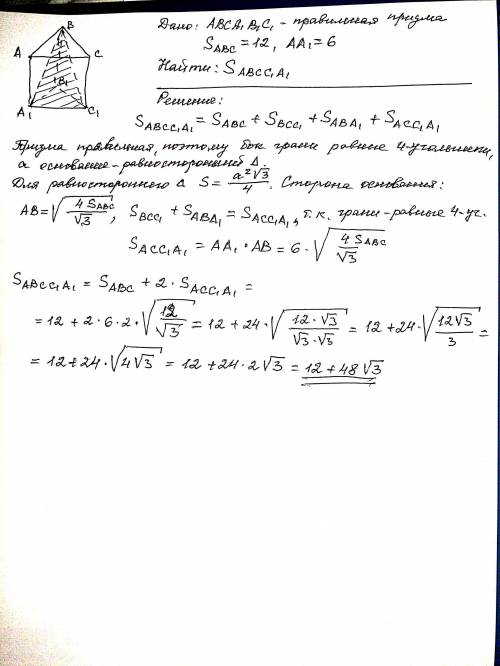 Дано: ABCA₁B₁C₁ - правильная призма
S_ABC = 12, AA₁ = 6
Найти: S_ABCC₁A₁
B
A C
B₁
A₁ C₁
Решение:
S_ABCC₁A₁ = S_ABC + S_BCC₁ + S_ABA₁ + S_ACC₁A₁
Призма правильная, поэтому бок грани равные 4-угольники,
а основание - равносторонний Δ.
Для равностороннего Δ S = a²√3/4. Сторона основания:
AB = √(4 S_ABC/√3), S_BCC₁ + S_ABA₁ = S_ACC₁A₁, т.к. грани - равные 4-уг.
S_ACC₁A₁ = AA₁ · AB = 6 · √(4 S_ABC/√3)
S_ABCC₁A₁ = S_ABC + 2 · S_ACC₁A₁ =
= 12 + 2 · 6 · 2 · √(12/√3) = 12 + 24 · √(12 · √3/√3 · √3) = 12 + 24 · √(12√3/3) =
= 12 + 24 · √(4√3) = 12 + 24 · 2√3 = 12 + 48√3